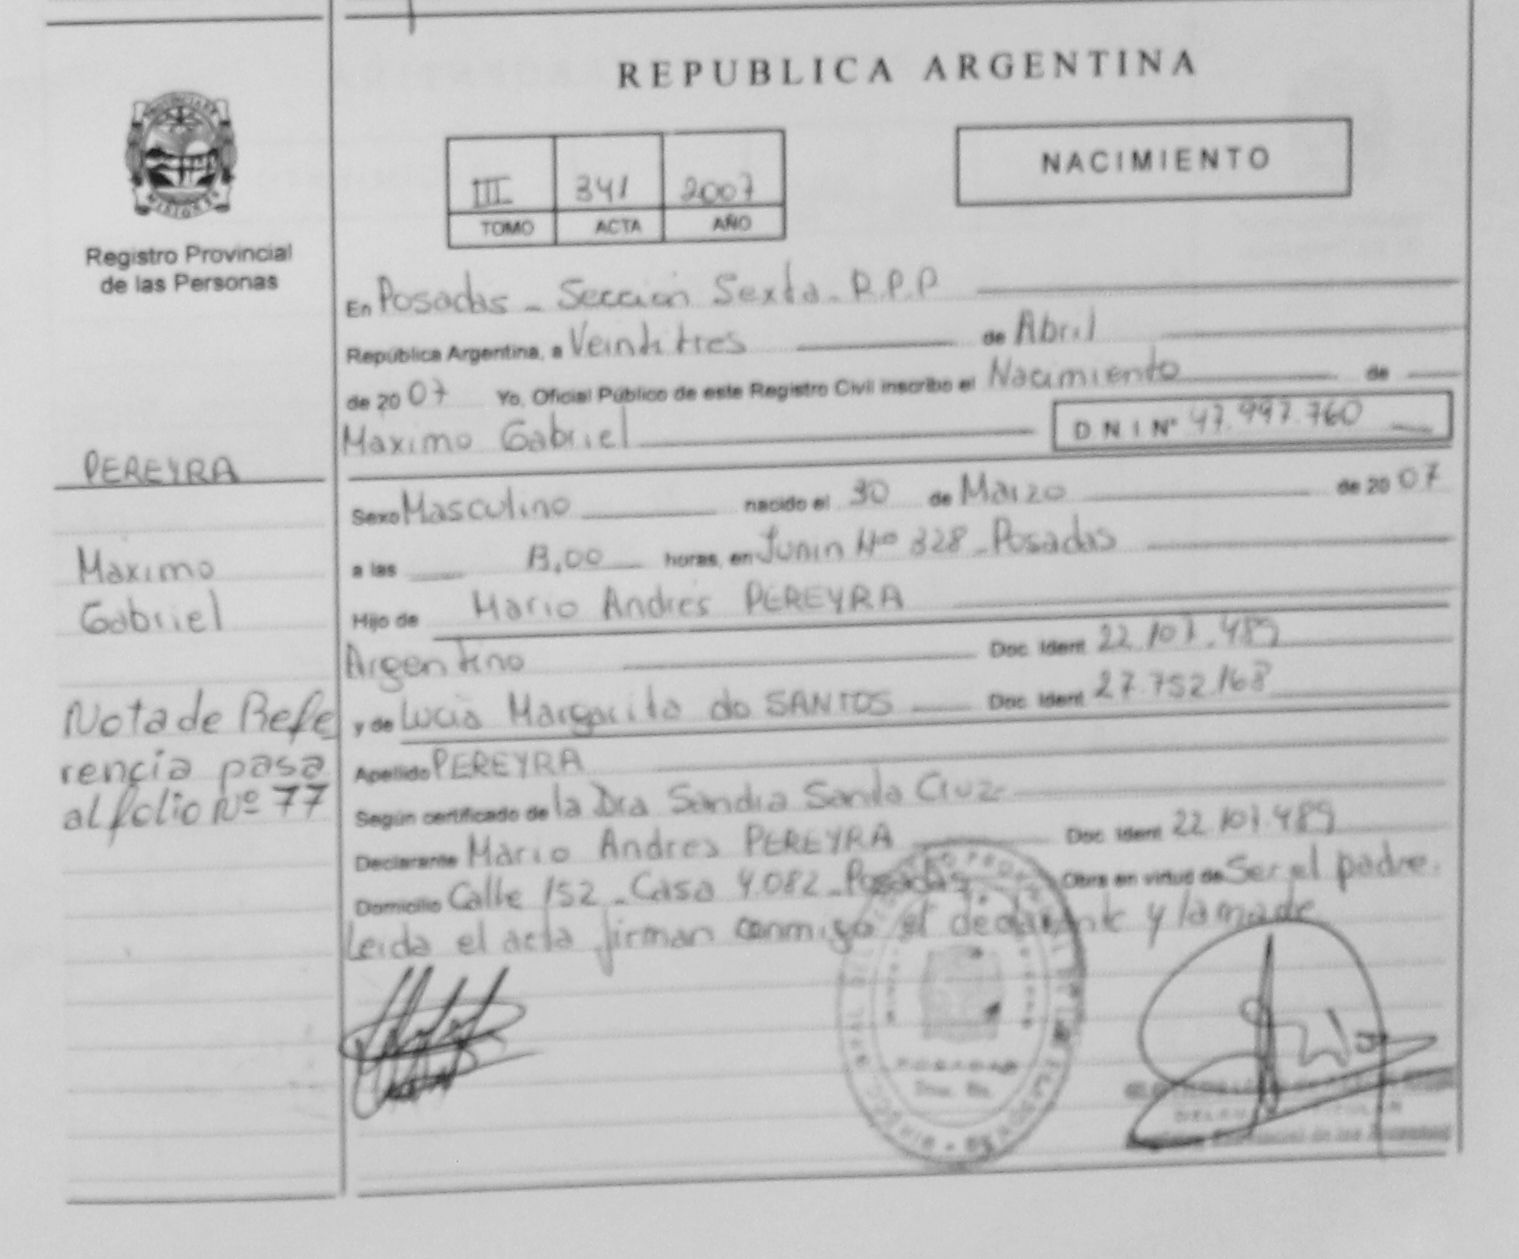 REPUBLICA ARGENTINA
MISIONES
Registro Provincial
de las Personas
III 341 2007
TOMO ACTA AÑO
NACIMIENTO
En Posadas - Sección Sexta - R.P.P
República Argentina, a Veintitres de Abril
de 2007 Yo, Oficial Público de este Registro Civil inscribo el Nacimiento de
Maximo Gabriel D N I Nº 47.997.760
PEREYRA
Sexo Masculino nacido el 30 de Marzo de 2007
Maximo
Gabriel
a las 13,00 horas, en Junin Nº 328 - Posadas
Hijo de Mario Andrés PEREYRA
Argentino Doc. Ident. 22.107.489
y de Lucia Margarita do SANTOS Doc. Ident. 27.752.168
Nota de Refe
rencia pasa
al folio Nº 77
Apellido PEREYRA
Según certificado de la Dra Sandra Santa Cruz
Declarante Mario Andres PEREYRA Doc. Ident. 22.107.489
Domicilio Calle 152 - Casa 4.082 - Posadas. Obra en virtud de Ser el padre.
Leida el acta firman conmigo el declarante y la made
POSADAS